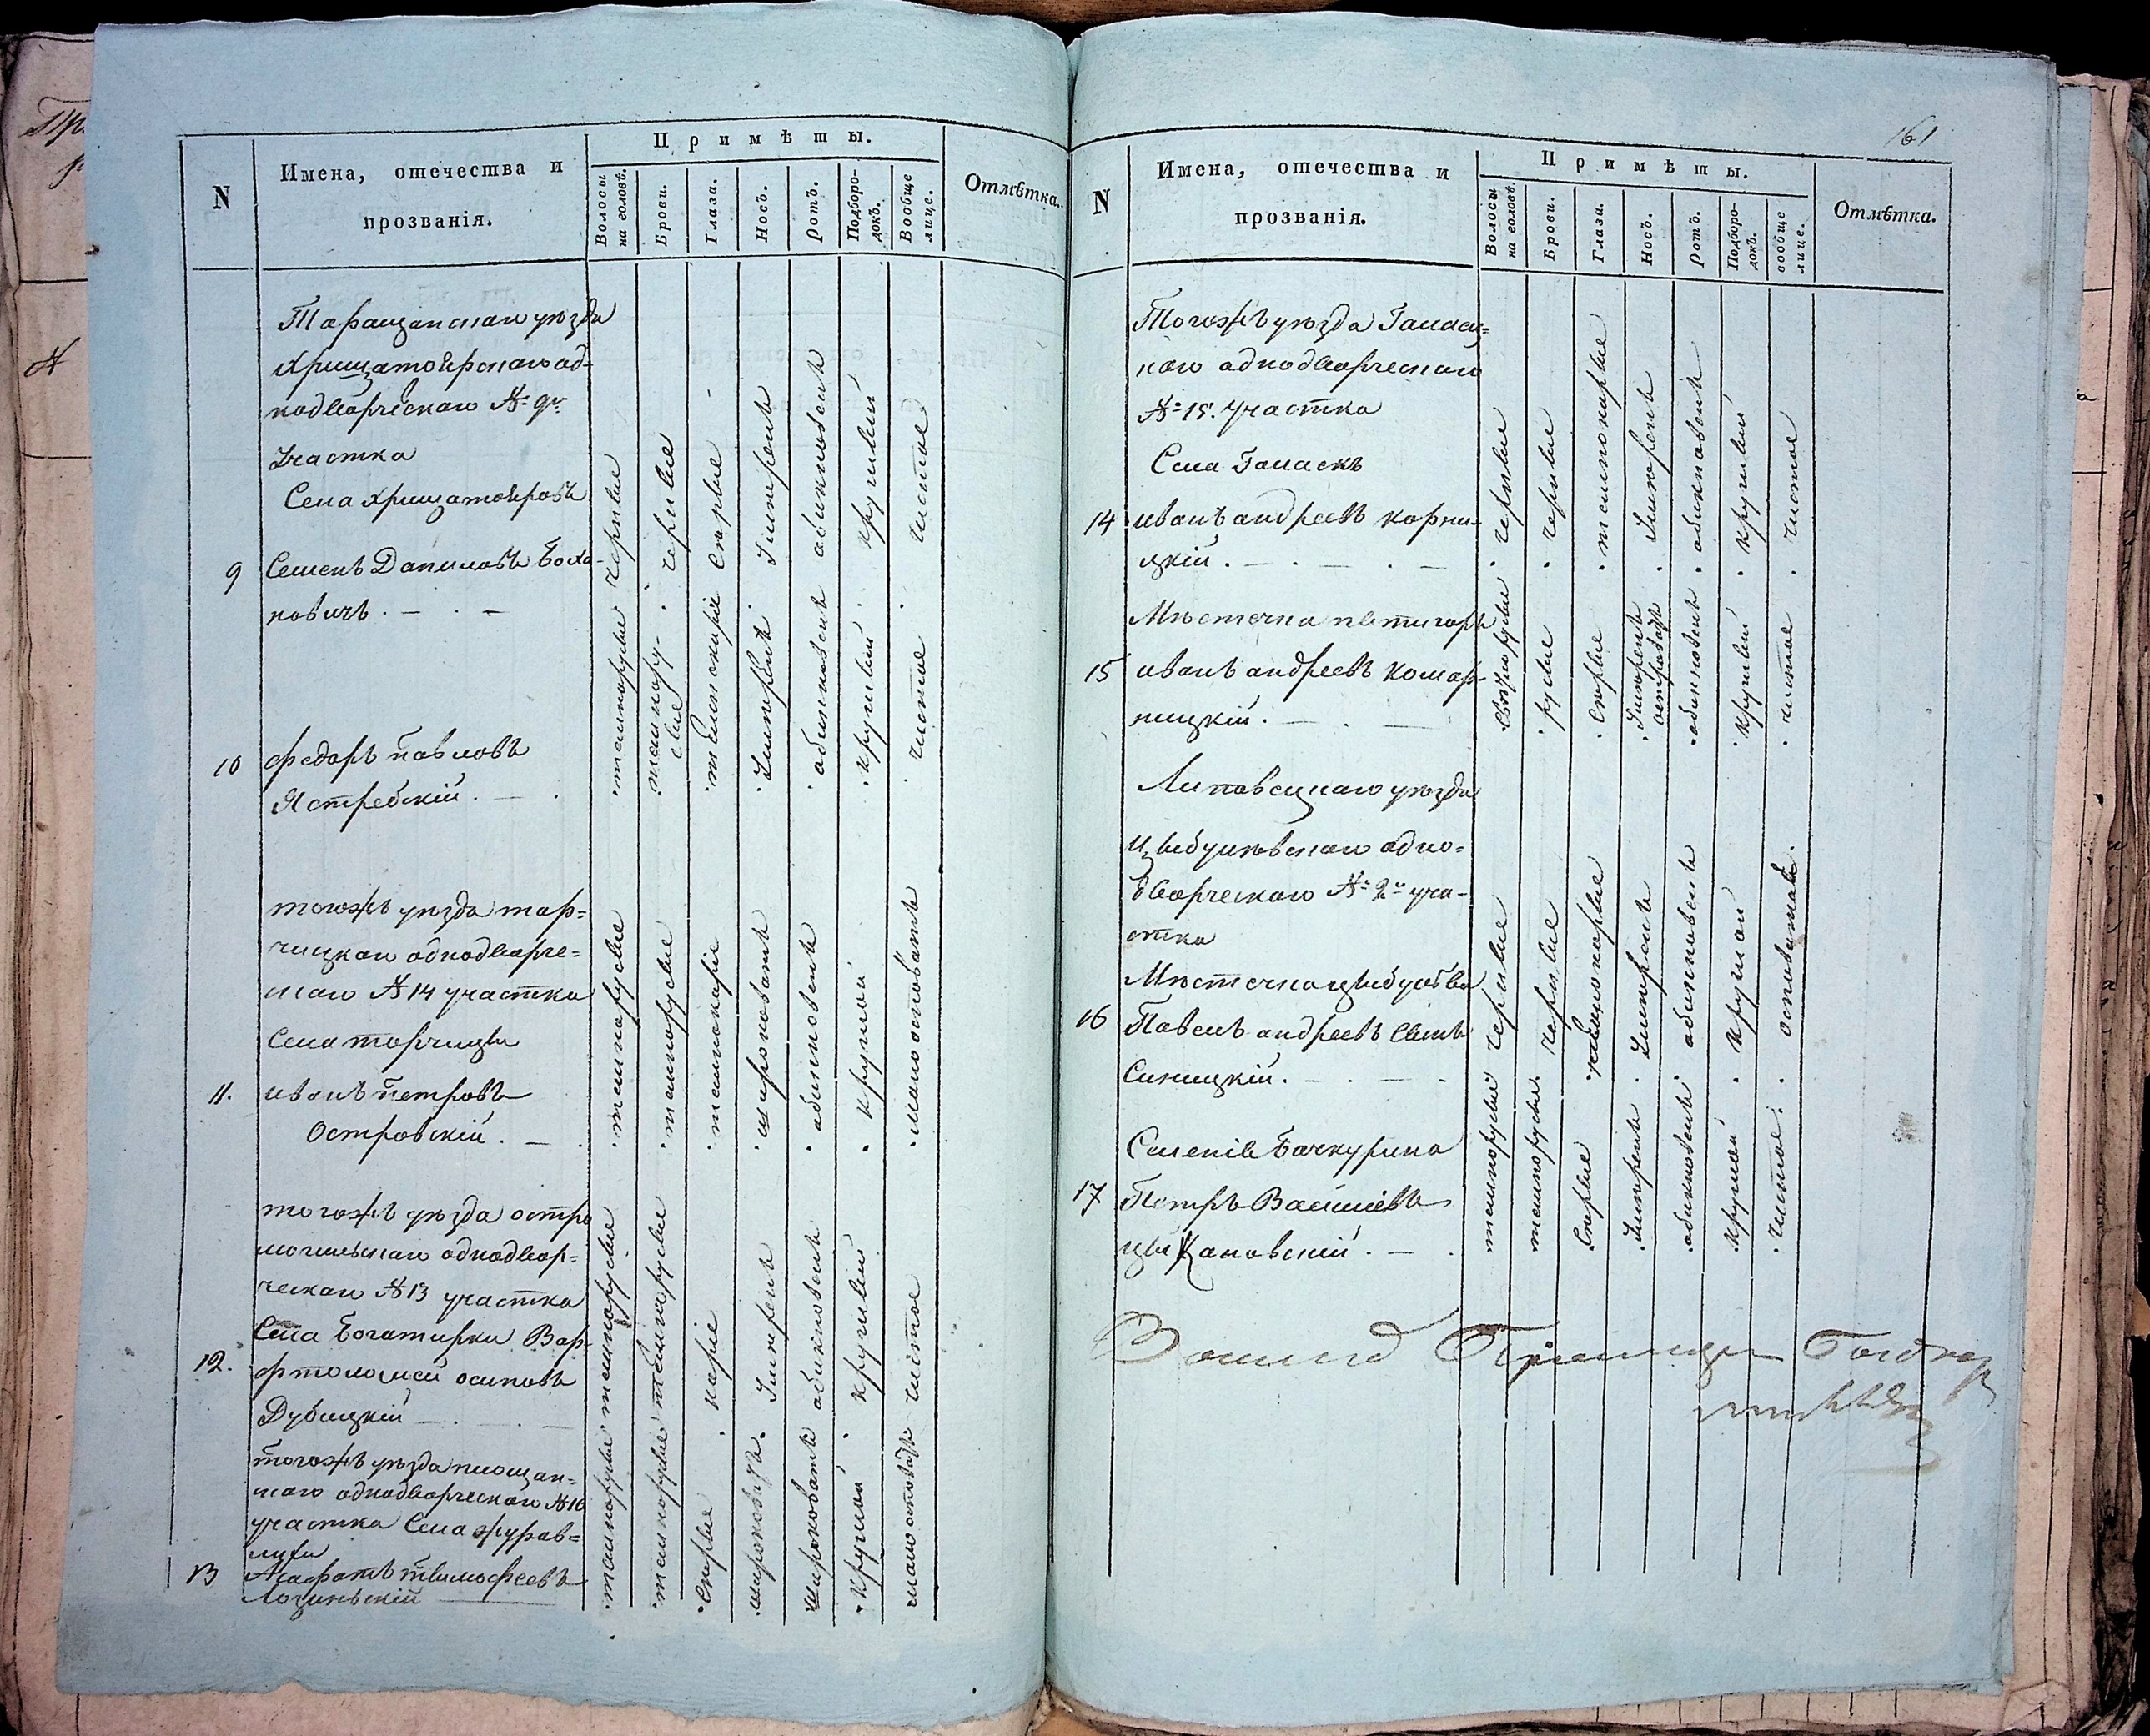 N
Имена, отечества и
прозванія.
Примѣты.
Волосы на головѣ.
Брови.
Глаза.
Носъ.
Ротъ.
Подбородокъ.
Вообще лице.
Отмѣтка.
Таращанскаго уѣзда
хрищатоярскаго од-
нодворческаго № 9го
участка
Села хрищатояровъ
9 Семенъ Даниловъ Боха-
новичъ. черные черные серые умѣренъ обикновенъ круглый чистое
10 федоръ павловъ
Ястребскій. темнорусые темнору-
сые темнокаріе умѣренъ обикновенъ круглый чистое
тогожъ уѣзда тор-
чицкаго однодворче-
скаго № 14 участка
Села торчицы
11. иванъ петровъ
Островскій. темнорусые темнорусые темнокаріе широковатъ обикновенъ круглой малоосповатъ
тогожъ уѣзда остро
могильскаго однодвор-
ческаго № 13 участка
Села Богатирки Вар-
12. фтоломей осиповъ
Дубицкій темнорусые темнорусые каріе умѣренъ обикновенъ круглый чистое
тогожъ уѣзда
однодворческаго № 16
участка Села журав-
лихи
13 тимофеевъ
темнорусые темнорусые серые широковатъ широковатъ круглой малоосповатъ
161
N
Имена, отечества и
прозванія.
Примѣты.
Волосы на головѣ.
Брови.
Глаза.
Носъ.
Ротъ.
Подбородокъ.
вообще лице.
Отмѣтка.
Тогожъ уѣзда Галай-
каго однодворческаго
№ 15. участка
Села
14 иванъ андреевъ корни-
цкій. черные черные темнокарые умѣренъ обикновенъ круглый чистое
Мѣстечка пятигоръ
15 иванъ андреевъ комар-
ницкій. светлорусые русые серые умѣренъ
островатъ обикновенъ круглый чистое
Липовецкаго уѣзда
цыбулевскаго одно-
дворческаго № 2го уча-
стка
Мѣстечка цыбулева
16 Павелъ андреевъ
Синицкій. черные черные темнокарые умѣренъ обикновенъ круглой осповатое.
Селенія Бачкурина
17 Петръ Василіевъ
цыкановскій. темнорусые темнорусые серые умѣренъ обикновенъ круглой чистое.